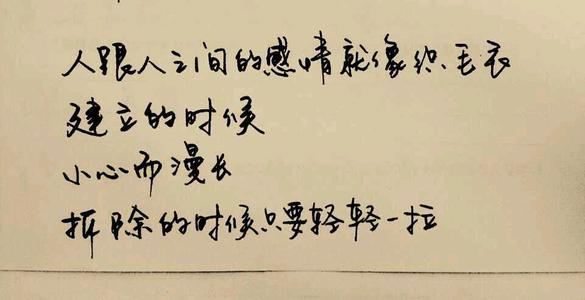 人跟人之间的感情就像织毛衣
建立的时候
小心而漫长
拆除的时候只要轻轻一拉